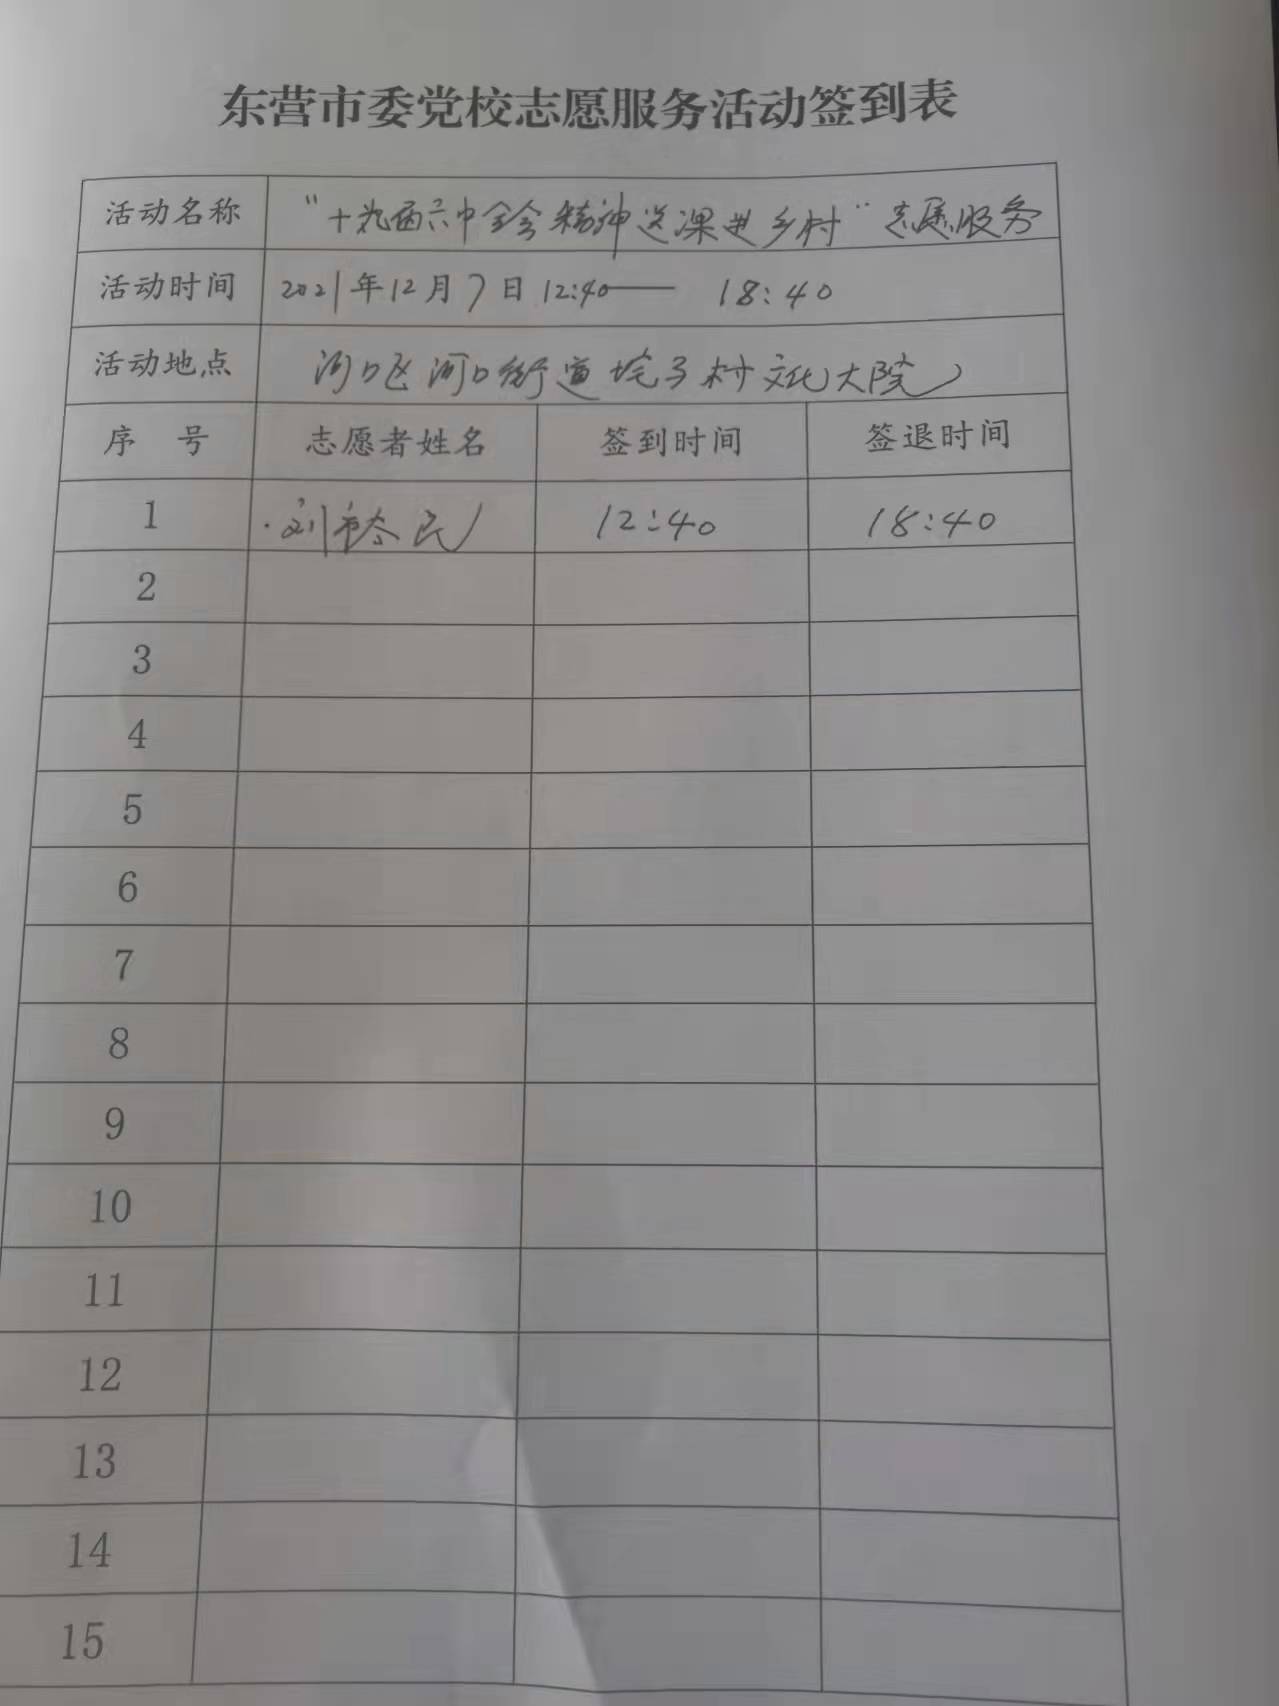 东营市委党校志愿服务活动签到表
活动名称 "十九届六中全会精神送课进乡村"志愿服务
活动时间 2021年12月7日 12:40—— 18:40
活动地点 河口区河口街道坨子村文化大院
序 号 志愿者姓名 签到时间 签退时间
1 刘 民 12:40 18:40
2
3
4
5
6
7
8
9
10
11
12
13
14
15